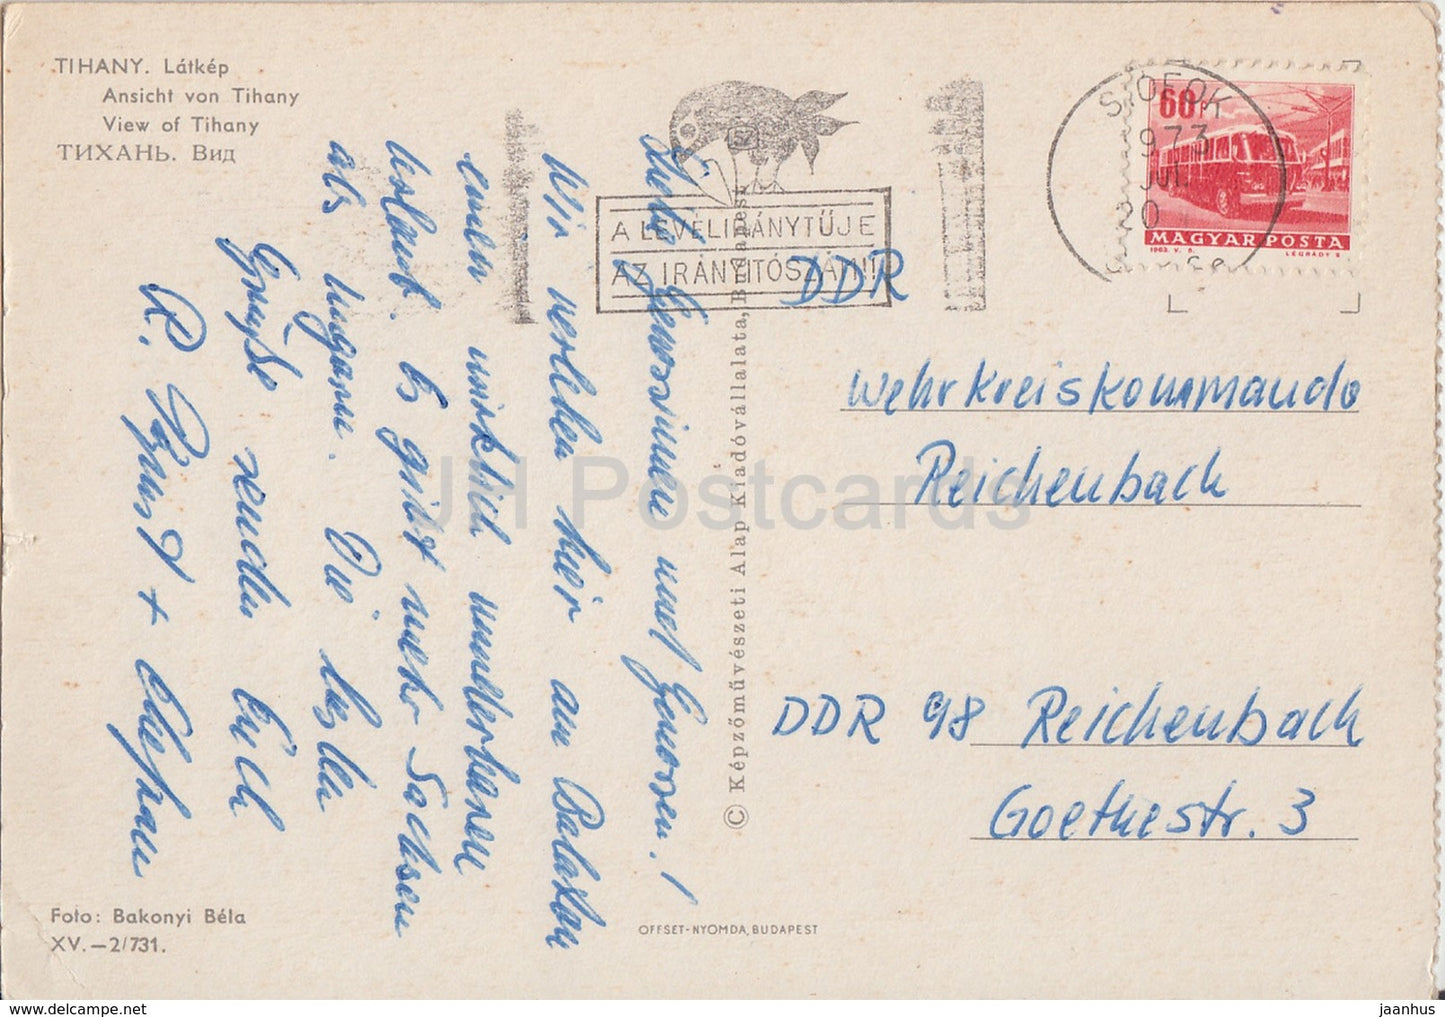 TIHANY. Látkép
Ansicht von Tihany
View of Tihany
ТИХАНЬ. Вид
A LEVÉL IRÁNYTŰJE
AZ IRÁNYÍTÓSZÁM!!
SIÓFOK
973
20
60f
MAGYAR POSTA
1963. V. 5.
LÉGRÁDY S
DDR
Wehrkreiskommando
Reichenbach
DDR 98 Reichenbach
Goethestr. 3
Liebe Genossinnen und Genossen!
Wir verleben hier am Balaton
einen wirklich wunderbaren
Urlaub. Es gibt mehr Sachsen
als Ungarn. Die besten
Grüße senden Euch
R. + Ehefrau
© Képzőművészeti Alap Kiadóvállalata, Budapest
Foto: Bakonyi Béla
XV.—2/731.
OFFSET-NYOMDA, BUDAPEST
JH Postcards
jaanhus - delcampe.net